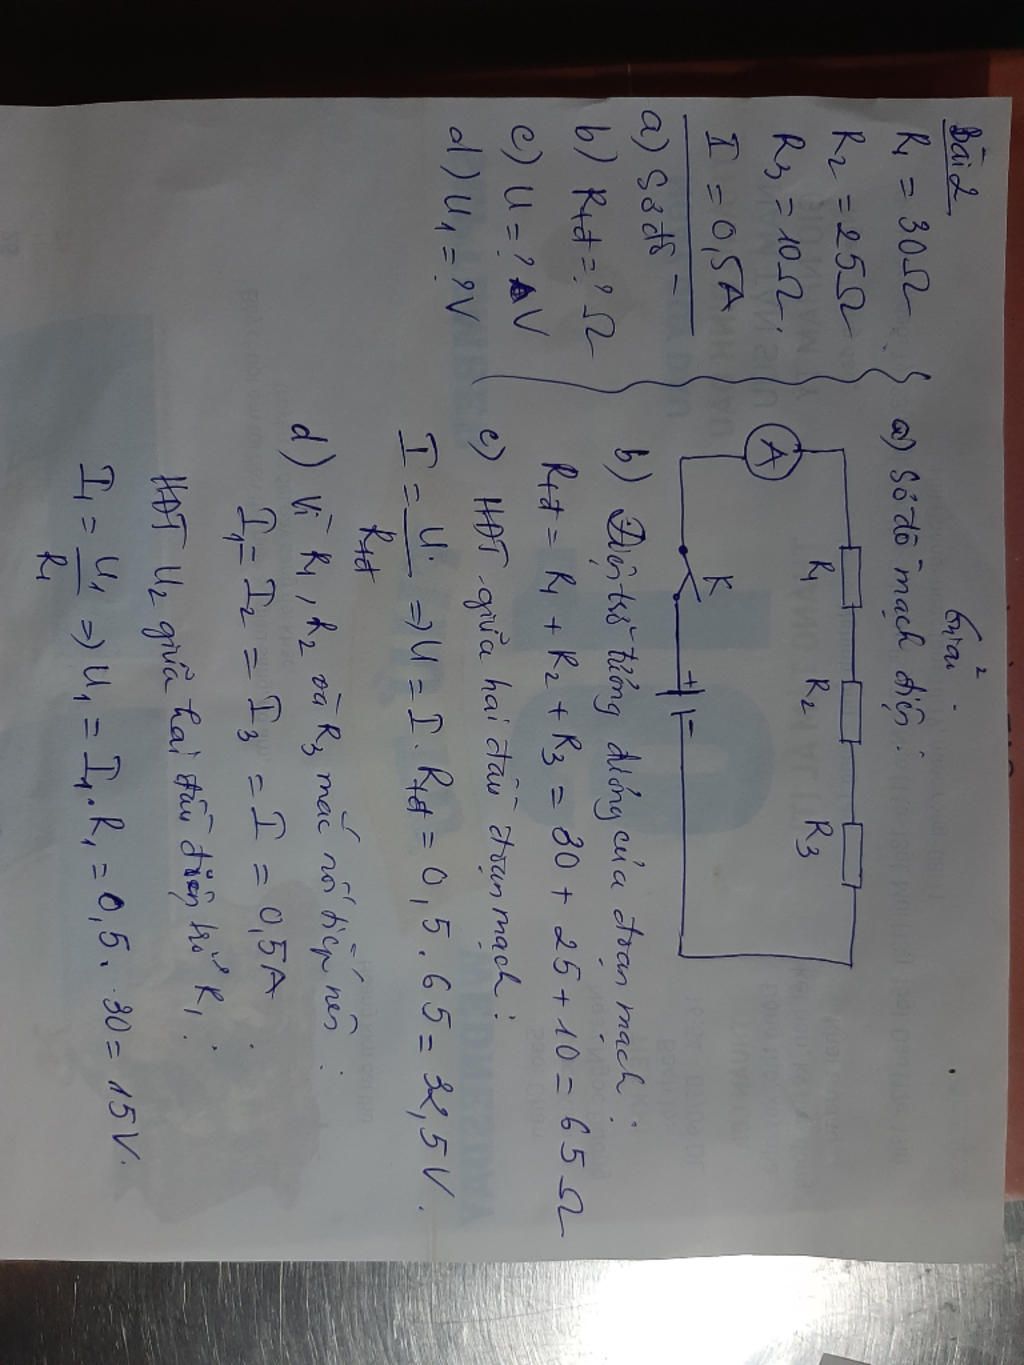 Bài 2
R1 = 30Ω
R2 = 25Ω
R3 = 10Ω
I = 0,5A
a) Sơ đồ
b) Rtđ = ? Ω
c) U = ? V
d) U1 = ? V
Giải
a) Sơ đồ mạch điện:
R1 R2 R3
A
K
+ -
b) Điện trở tương đương của đoạn mạch:
Rtđ = R1 + R2 + R3 = 30 + 25 + 10 = 65 Ω
c) HĐT giữa hai đầu đoạn mạch:
I = U/Rtđ => U = I . Rtđ = 0,5 . 65 = 32,5V.
d) Vì R1, R2 và R3 mắc nối tiếp nên:
I1 = I2 = I3 = I = 0,5A
HĐT U2 giữa hai đầu điện trở R1:
I1 = U1/R1 => U1 = I1 . R1 = 0,5 . 30 = 15V.